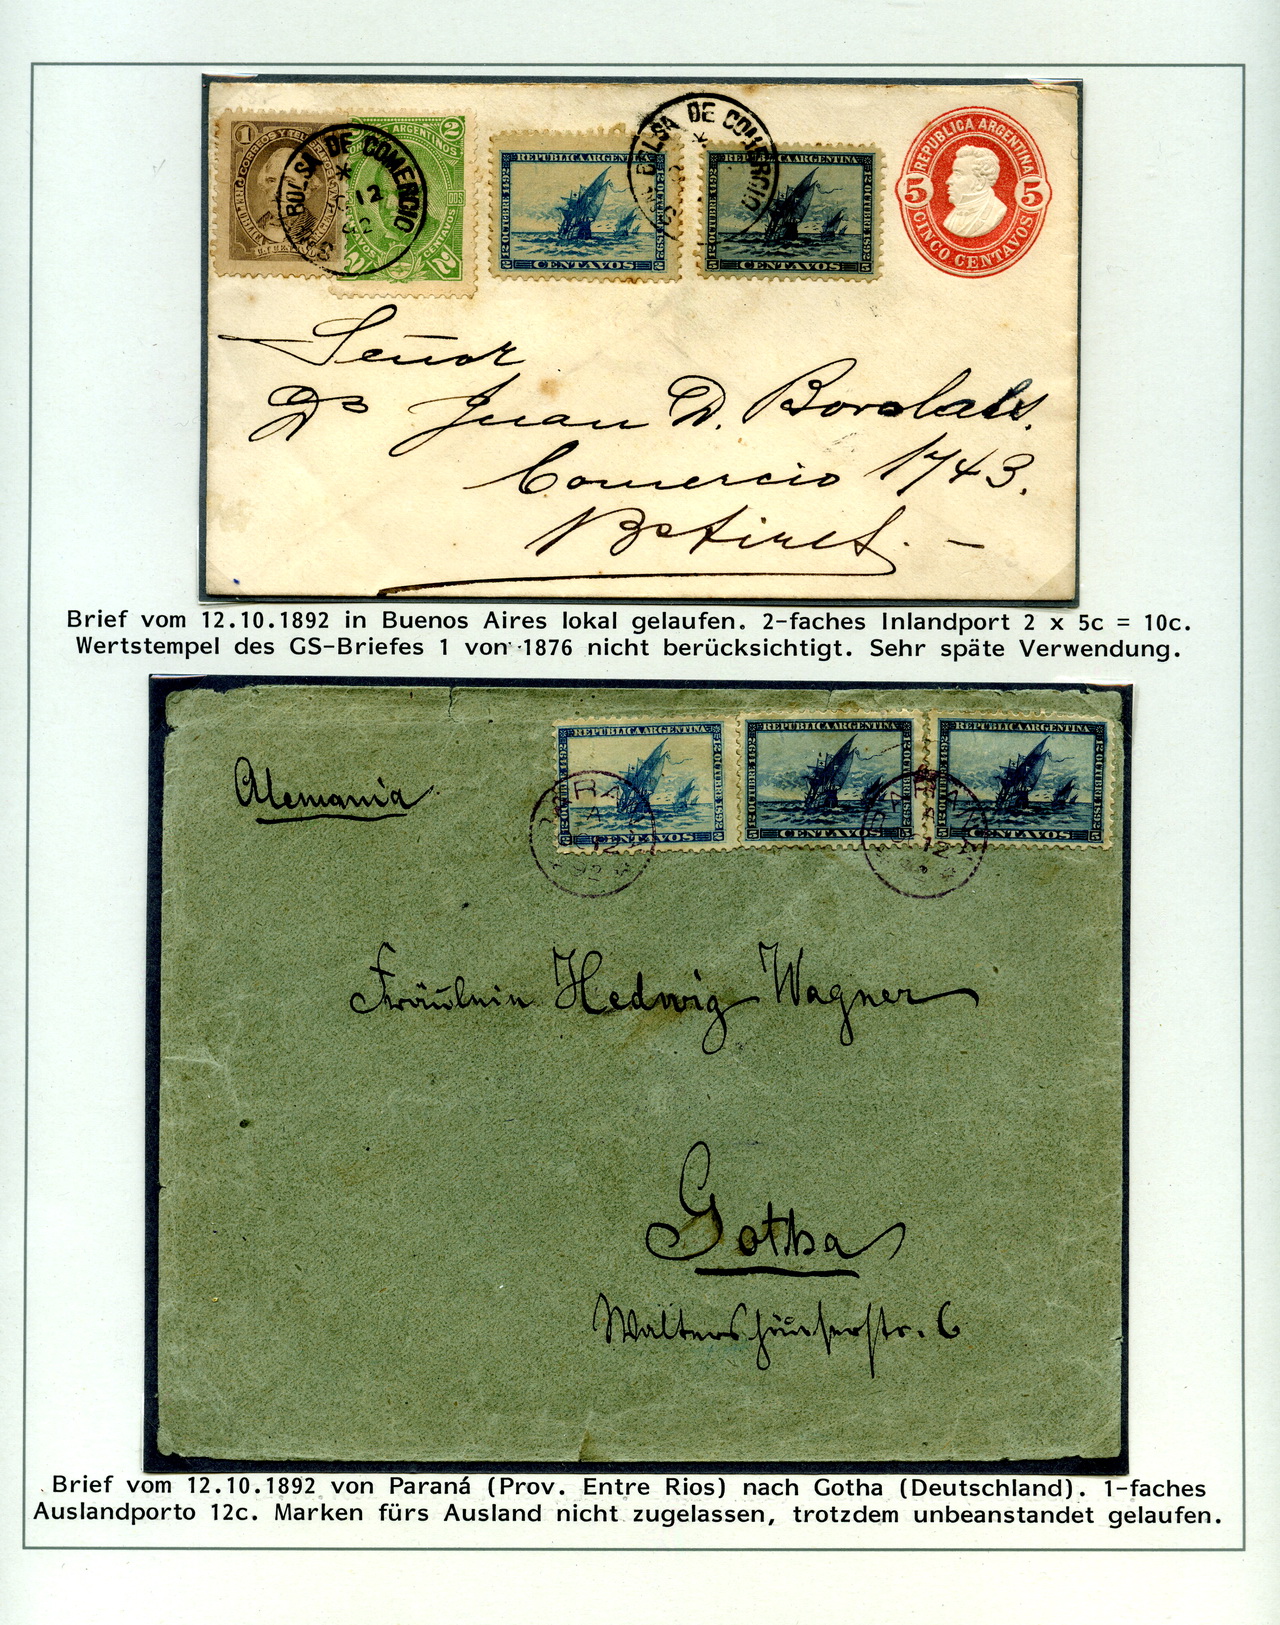 1 CORREOS Y TEL
2 ARGENTINOS 2
DOS
CENTAVOS
BOLSA DE COMERCIO
12
92
REPUBLICA ARGENTINA
12 OCTUBRE 1492
12 OCTUBRE 1892
2 CENTAVOS 2
BOLSA DE COMERCIO
REPUBLICA ARGENTINA
12 OCTUBRE 1492
12 OCTUBRE 1892
5 CENTAVOS 5
REPUBLICA ARGENTINA
5 5
CINCO CENTAVOS
Señor
Dn Juan D.
Comercio 1743.
Bs Aires. -
Brief vom 12.10.1892 in Buenos Aires lokal gelaufen. 2-faches Inlandport 2 x 5c = 10c.
Wertstempel des GS-Briefes 1 von 1876 nicht berücksichtigt. Sehr späte Verwendung.
REPUBLICA ARGENTINA
12 OCTUBRE 1492
12 OCTUBRE 1892
2 CENTAVOS 2
REPUBLICA ARGENTINA
12 OCTUBRE 1492
12 OCTUBRE 1892
5 CENTAVOS 5
REPUBLICA ARGENTINA
12 OCTUBRE 1492
12 OCTUBRE 1892
5 CENTAVOS 5
12
92
12
Alemania
Fräulein Hedwig Wagner
Gotha
Waltershäuserstr. 6
Brief vom 12.10.1892 von Paraná (Prov. Entre Rios) nach Gotha (Deutschland). 1-faches
Auslandporto 12c. Marken fürs Ausland nicht zugelassen, trotzdem unbeanstandet gelaufen.